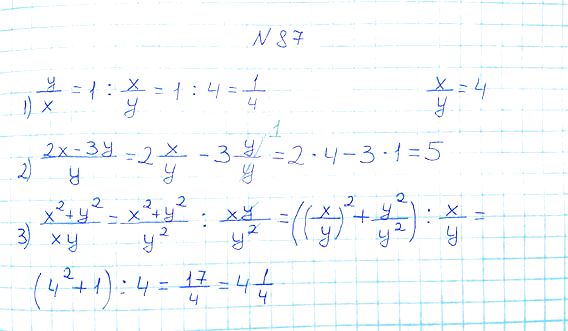 N 87
1) y/x = 1 : x/y = 1 : 4 = 1/4 x/y = 4
2) (2x - 3y)/y = 2 x/y - 3 y/y 1 = 2 · 4 - 3 · 1 = 5
3) (x² + y²)/(xy) = (x² + y²)/y² : xy/y² = ((x/y)² + y²/y²) : x/y =
(4² + 1) : 4 = 17/4 = 4 1/4